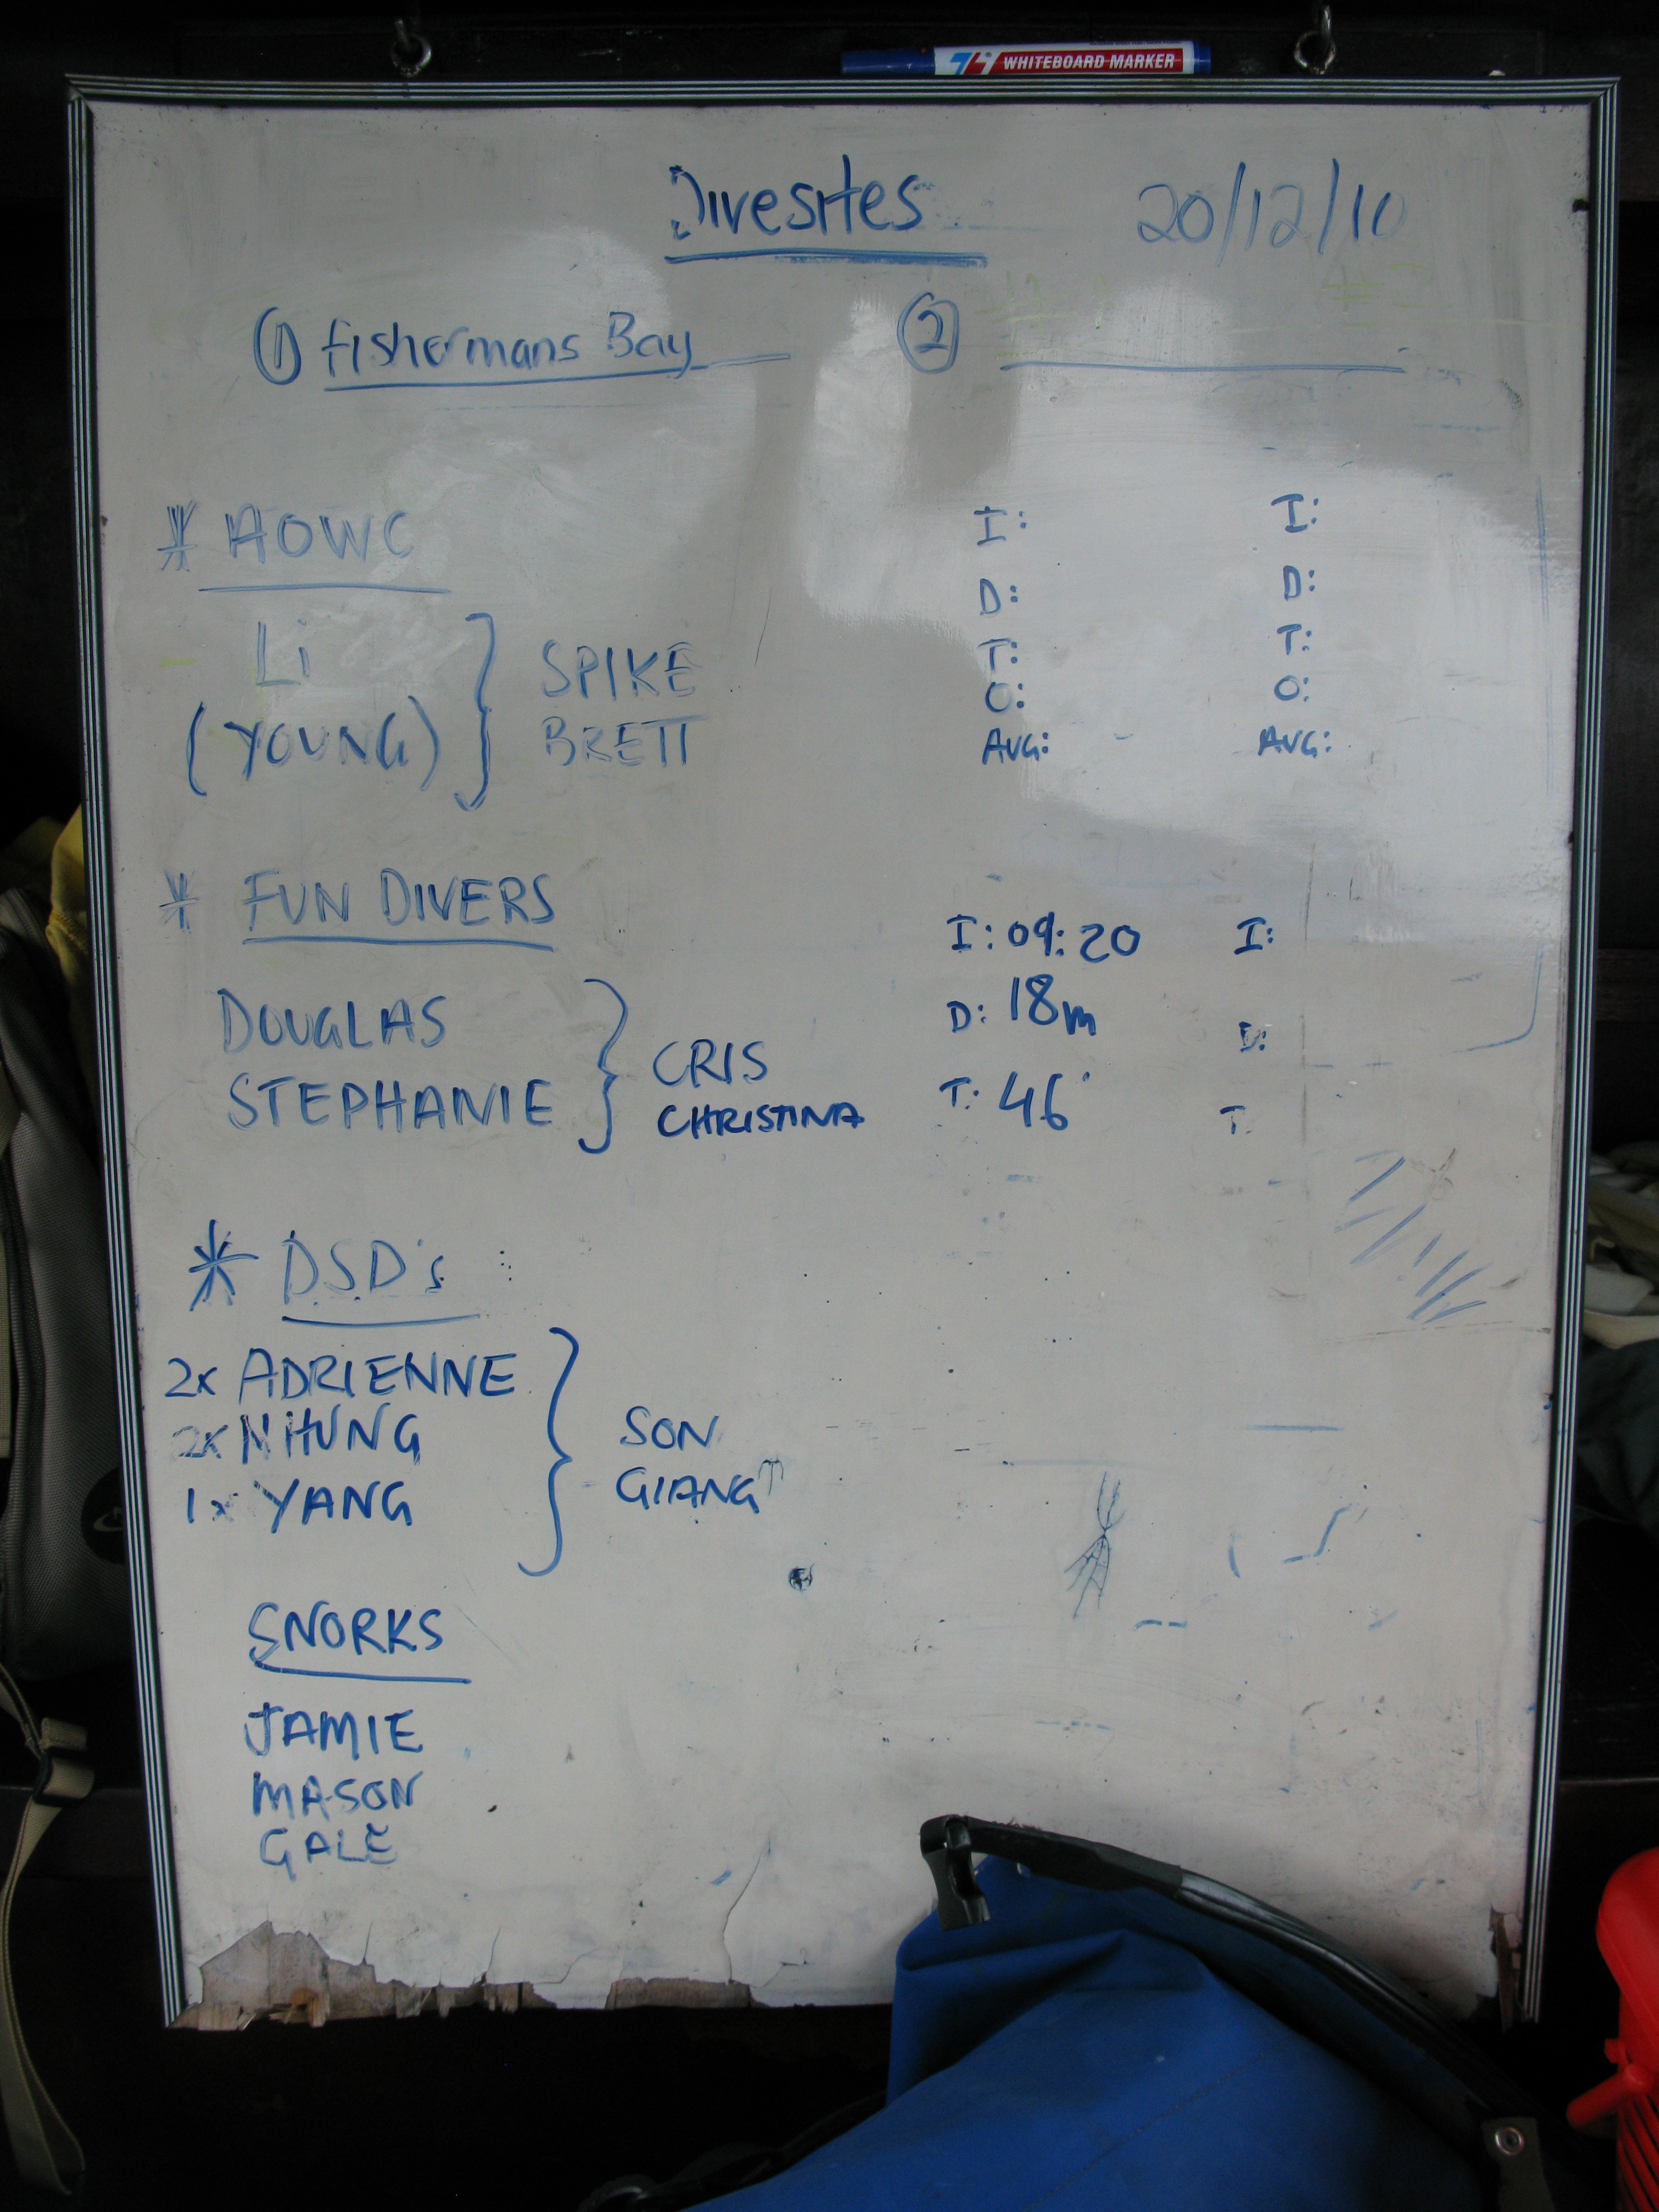 WHITEBOARD MARKER
Divesites 20/12/10
① fishermans Bay ②
* AOWC
Li
(YOUNG)
SPIKE
BRETT
I: I:
D: D:
T: T:
O: O:
AVG: AVG:
* FUN DIVERS
DOUGLAS
STEPHANIE
CRIS
CHRISTINA
I: 09:20 I:
D: 18m D:
T: 46' T:
* DSD's
2x ADRIENNE
2x NHUNG
1x YANG
SON
GIANG
SNORKS
JAMIE
MASON
GALE